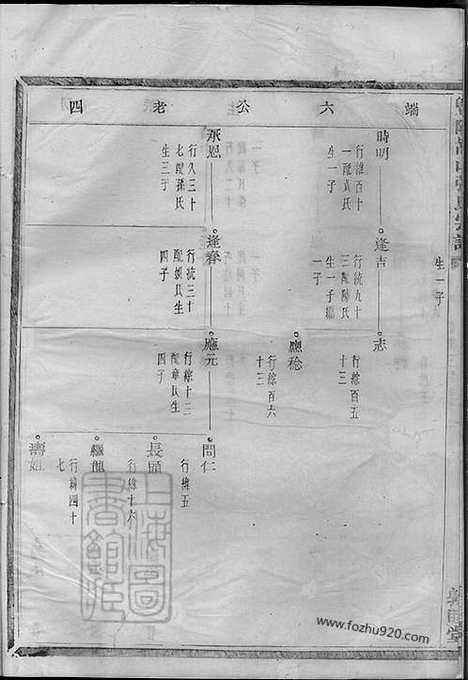 端六公老四
生一子
時明
行維百十
一配袁氏
生一子
逢吉
行統九十
三配陽氏
生一子繼
一子
志
行綜百五
十三
應稔
行綜百六
十三
承恩
行久三十
七配孫氏
生三子
逢春
行統三十
配姬氏生
四子
應元
行綜十二
配章氏生
四子
問仁
行維五
長頭
行維十六
繼龍
行維四十
七
壽姐
上海图
書館臧
www.fozhu920.com